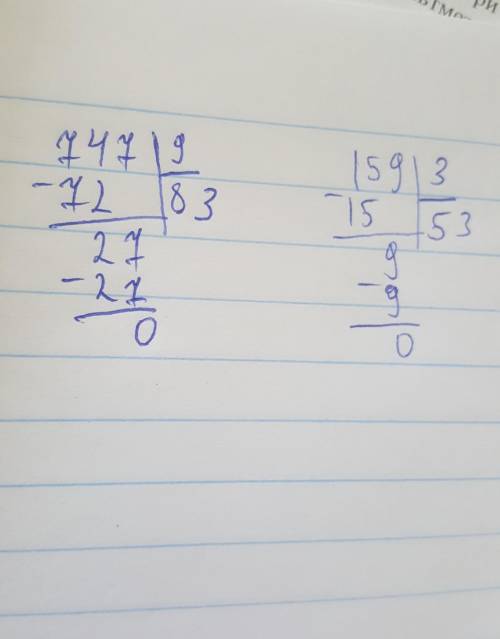 747 9
-72 83
27
-27
0
159 3
-15 53
9
-9
0
ри